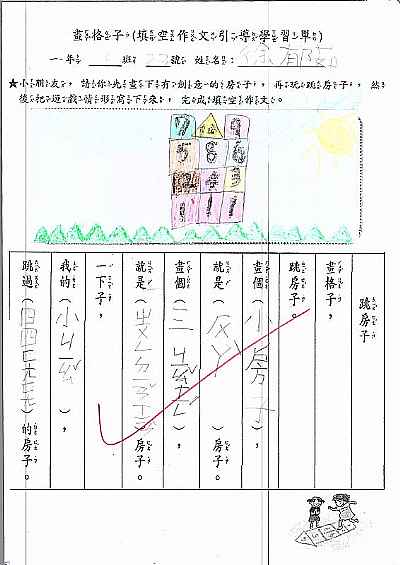 畫格子(填空作文引導學習單)
一年 班23號 姓名：
★小朋友，請你先畫下有創意的房子，再玩跳房子，然
後把遊戲情形寫下來，完成填空作文。
跳房子
畫格子，
跳房子。
畫個(小房子)，
就是( )房子。
畫個(三 )，
就是( )房子。
一下子，
我的(小ㄐㄧㄠˇ)，
跳過( )的房子。